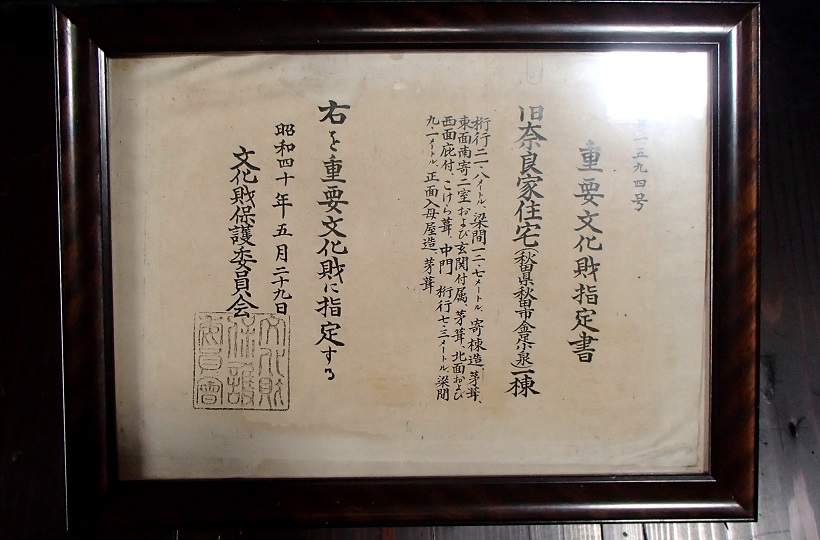 第一五九四号
重要文化財指定書
旧奈良家住宅(秋田県秋田市金足小泉)一棟
桁行二一・八メートル、梁間一二・七メートル、寄棟造、茅葺、
東面南寄二室および玄関付属、茅葺、北面および
西面庇付、こけら葺、中門 桁行七・三メートル、梁間
九・一メートル、正面入母屋造、茅葺
右を重要文化財に指定する
昭和四十年五月二十九日
文化財保護委員会
文化財
保護
委員會